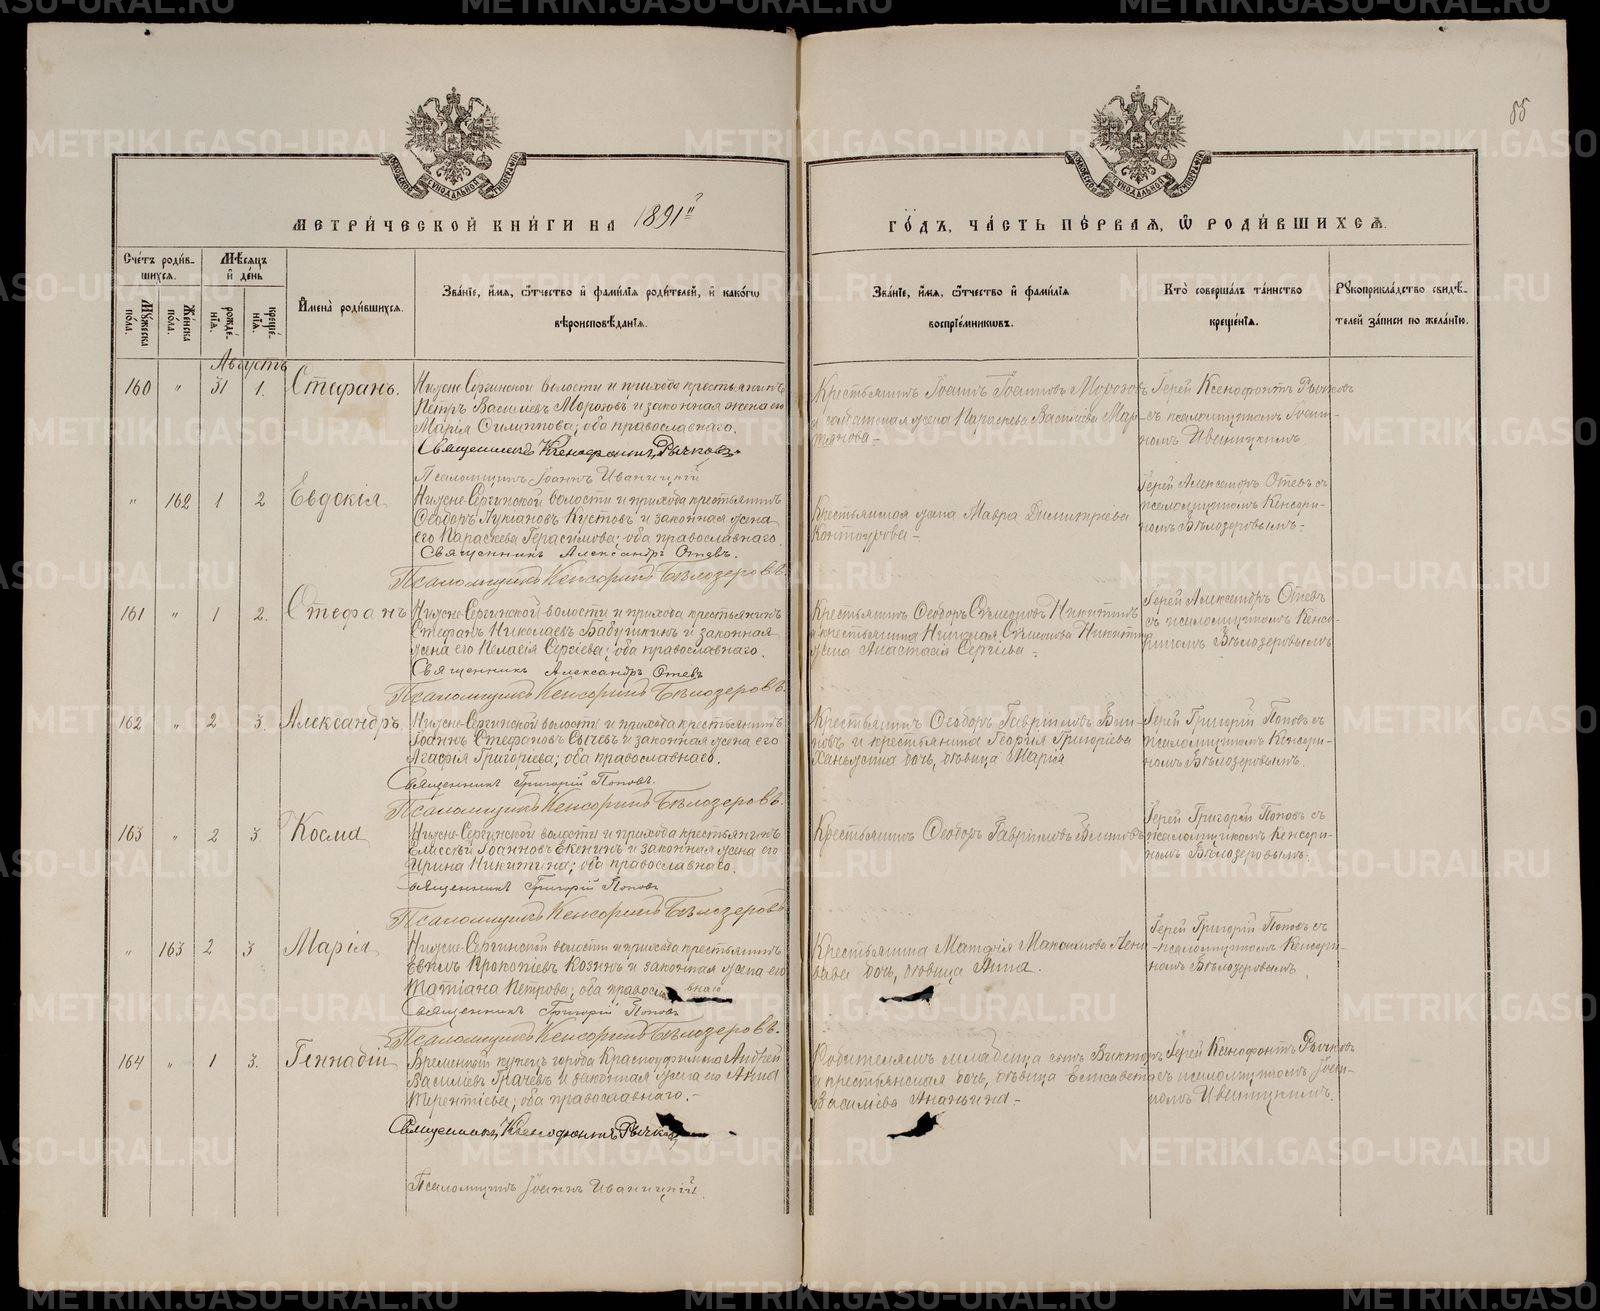 METRIKI.GASO-URAL.RU
МОСКОВСКОЙ СѴНОДАЛЬНОЙ ТИПОГРАФІИ
МОСКОВСКОЙ СѴНОДАЛЬНОЙ ТИПОГРАФІИ
МЕТРИ́ЧЕСКОЙ КНИ́ГИ НА 1891й
ГО́ДЪ, ЧА́СТЬ ПЕ́РВАЯ, Ѽ РОДИ́ВШИХСЯ.
Сче́тъ роди́в-
шихся.
Мꙋжеска
по́ла.
Же́нска
по́ла.
Мѣ́сяцъ
и҆ де́нь
рожде́-
нїя.
креще́-
нїя.
И҆мена̀ роди́вшихся.
Зва́нїе, и҆́мя, ѻ҆́тчество и҆ фами́лїя роди́телей, и҆ како́гѡ
вѣроисповѣ́данїя.
Зва́нїе, и҆́мя, ѻ҆́тчество и҆ фами́лїя
воспрїе́мникѡвъ.
Кто̀ соверша́лъ та́инство
креще́нїя.
Рꙋкоприкла́дство свидѣ́-
телей за́писи по жела́нїю.
Августъ
160 " 31 1. Стефанъ.
Нижне-Сергинской волости и прихода крестьянинъ
Петръ Василіевъ Морозовъ и законная жена его
Марія Филиппова; оба православнаго.
Священникъ Ксенофонтъ Рычковъ
Псаломщикъ Іоаннъ Иваницкій
Крестьянинъ Іоаннъ Іоанновъ Морозовъ
и солдатская жена Параскева Василіева Мар-
Іерей Ксенофонтъ Рычковъ
съ псаломщикомъ Іоан-
номъ Иваницкимъ
" 162 1 2 Евдокія
Нижне-Сергинской волости и прихода крестьянинъ
Ѳеодоръ Лукіановъ Кустовъ и законная жена
его Параскева Герасимова; оба православнаго.
Священникъ Александръ Отевъ.
Псаломщикъ Кенсоринъ Бѣлозеровъ.
Крестьянская жена Мавра Димитріева
Іерей Александръ Отевъ съ
псаломщикомъ Кенсори-
номъ Бѣлозеровымъ-
161 " 1 2. Стефанъ
Нижне-Сергинской волости и прихода крестьянинъ
Стефанъ Николаевъ Бабушкинъ и законная
жена его Пелагія Сергіева; оба православнаго.
Священникъ Александръ Отевъ
Псаломщикъ Кенсоринъ Бѣлозеровъ.
Крестьянинъ Ѳеодоръ Сѵмеоновъ Никитинъ
и крестьянина Николая Сѵмеонова Никитина
жена Анастасія Сергіева-
Іерей Александръ Отевъ
съ псаломщикомъ Кенсо-
риномъ Бѣлозеровымъ
162 " 2 3. Александръ
Нижне-Сергинской волости и прихода крестьянинъ
Іоаннъ Стефановъ Сычевъ и законная жена его
Агафія Григоріева; оба православнаго.
Священникъ Григорій Поповъ.
Псаломщикъ Кенсоринъ Бѣлозеровъ.
Крестьянинъ Ѳеодоръ Гавріиловъ Бли-
новъ и крестьянина Георгія Григоріева
дочь, дѣвица Марія
Іерей Григорій Поповъ съ
псаломщикомъ Кенсори-
номъ Бѣлозеровымъ.
163 " 2 3. Косма
Нижне-Сергинской волости и прихода крестьянинъ
Елиссей Іоанновъ Екенинъ и законная жена его
Ирина Никитина; оба православнаго.
Священникъ Григорій Поповъ
Псаломщикъ Кенсоринъ Бѣлозеровъ
Крестьянинъ Ѳеодоръ Гавріиловъ Блиновъ
Іерей Григорій Поповъ съ
псаломщикомъ Кенсори-
номъ Бѣлозеровымъ.
" 163 2 3 Марія
Нижне-Сергинской волости и прихода крестьянинъ
Евѳимъ Прокопіевъ Козинъ и законная жена его
Татіана Петрова; оба православнаго
Священникъ Григорій Поповъ
Псаломщикъ Кенсоринъ Бѣлозеровъ.
Крестьянина Матѳія Максимова
дочь, дѣвица Анна.
Іерей Григорій Поповъ съ
псаломщикомъ Кенсори-
номъ Бѣлозеровымъ.
164 " 1 3. Геннадій
Временный купецъ города Красноуфимска Андрей
Василіевъ Грачевъ и законная жена его Анна
Терентіева; оба православнаго.-
Священникъ Ксенофонтъ Рычковъ
Псаломщикъ Іоаннъ Иваницкій.
Родителямъ младенца сынъ Викторъ
и крестьянская дочь, дѣвица Елисавета
Василіева Ананьина-
Іерей Ксенофонтъ Рычковъ
съ псаломщикомъ Іоан-
номъ Иваницкимъ.